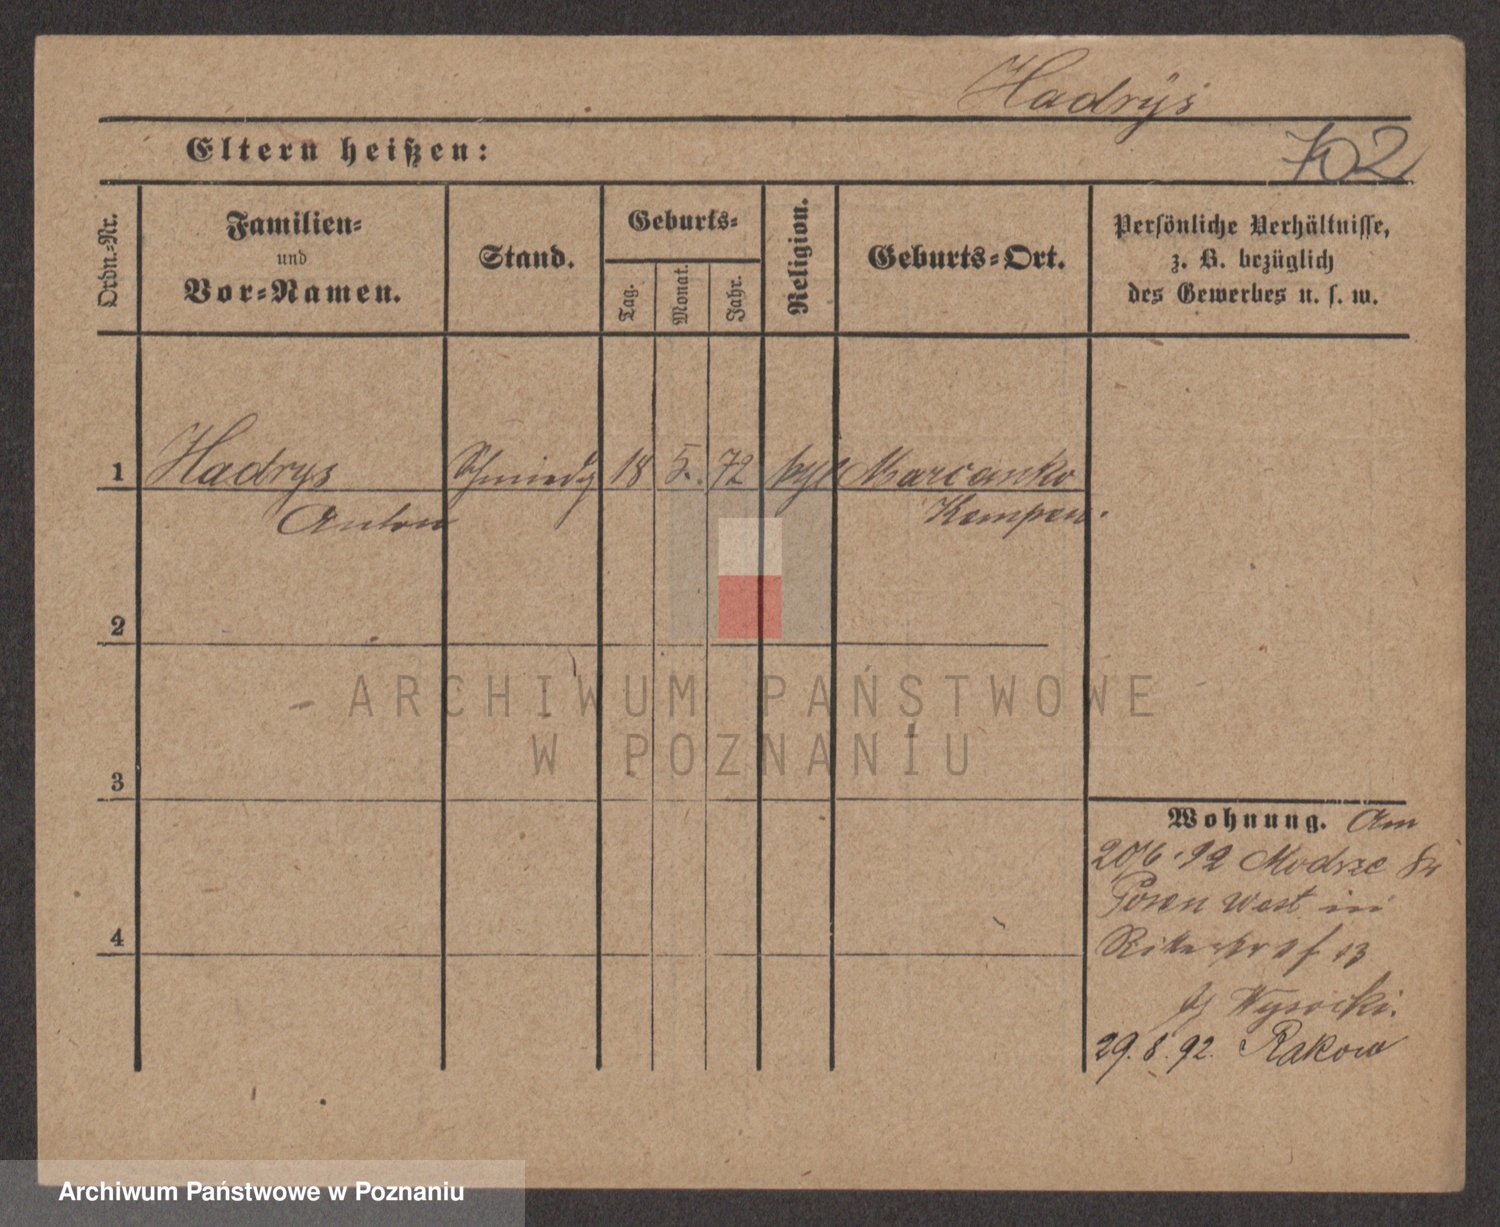 Hadrys
Eltern heißen:
702
Ordn.-Nr.
Familien-
und
Vor-Namen.
Stand.
Geburts-
Tag.
Monat.
Jahr.
Religion.
Geburts-Ort.
Persönliche Verhältnisse,
z. B. bezüglich
des Gewerbes u. s. w.
1 Hadrys Schmiedg 18 5. 72 Marcanko
Anton Kempen.
2
3
4
Wohnung. Am
20/6.92 Modrze
Posen West in
13
Wysocki.
29.8.92. Rakow
ARCHIWUM PAŃSTWOWE
W POZNANIU
Archiwum Państwowe w Poznaniu